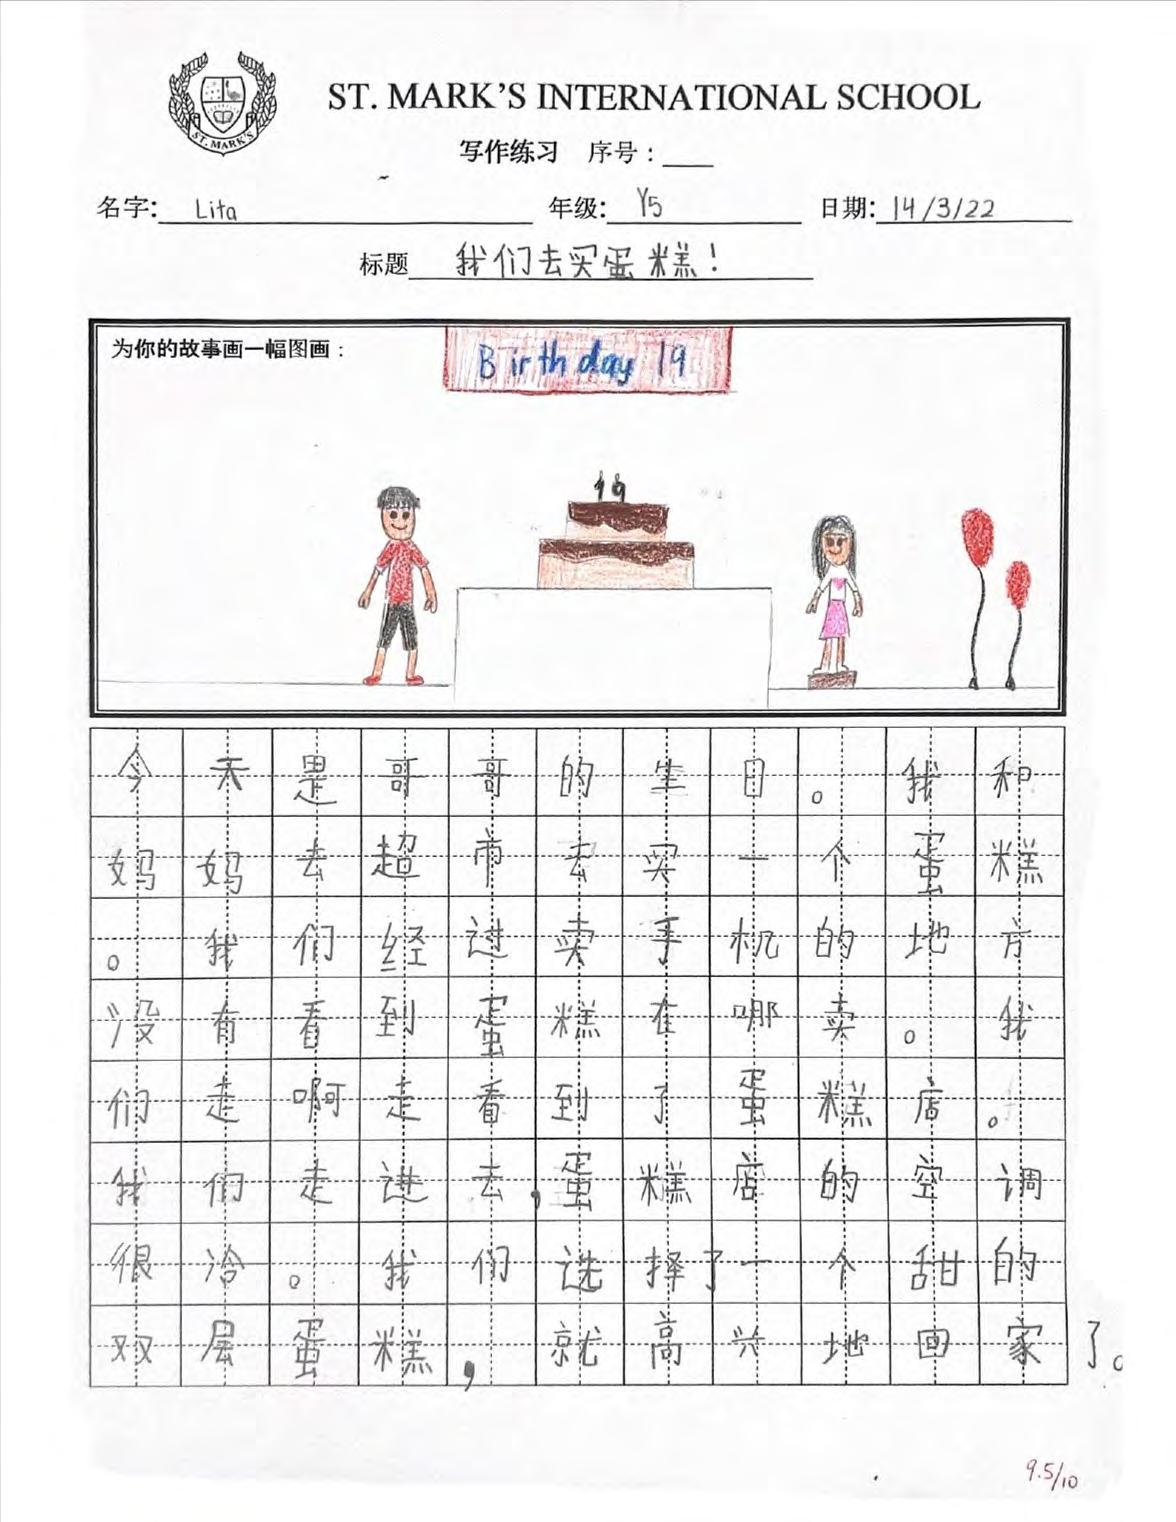 ST. MARK'S
ST. MARK'S INTERNATIONAL SCHOOL
写作练习 序号：
名字： Lita 年级： Y5 日期： 14/3/22
标题 我们去买蛋糕！
为你的故事画一幅图画：
Birthday 19
19
今天是哥哥的生日。我和
妈妈去超市去买一个蛋糕
。我们经过卖手机的地方
没有看到蛋糕在哪卖。我
们走啊走看到了蛋糕店。
我们走进去，蛋糕店的空调
很冷。我们选择了一个甜的
双层蛋糕，就高兴地回家了。
9.5/10